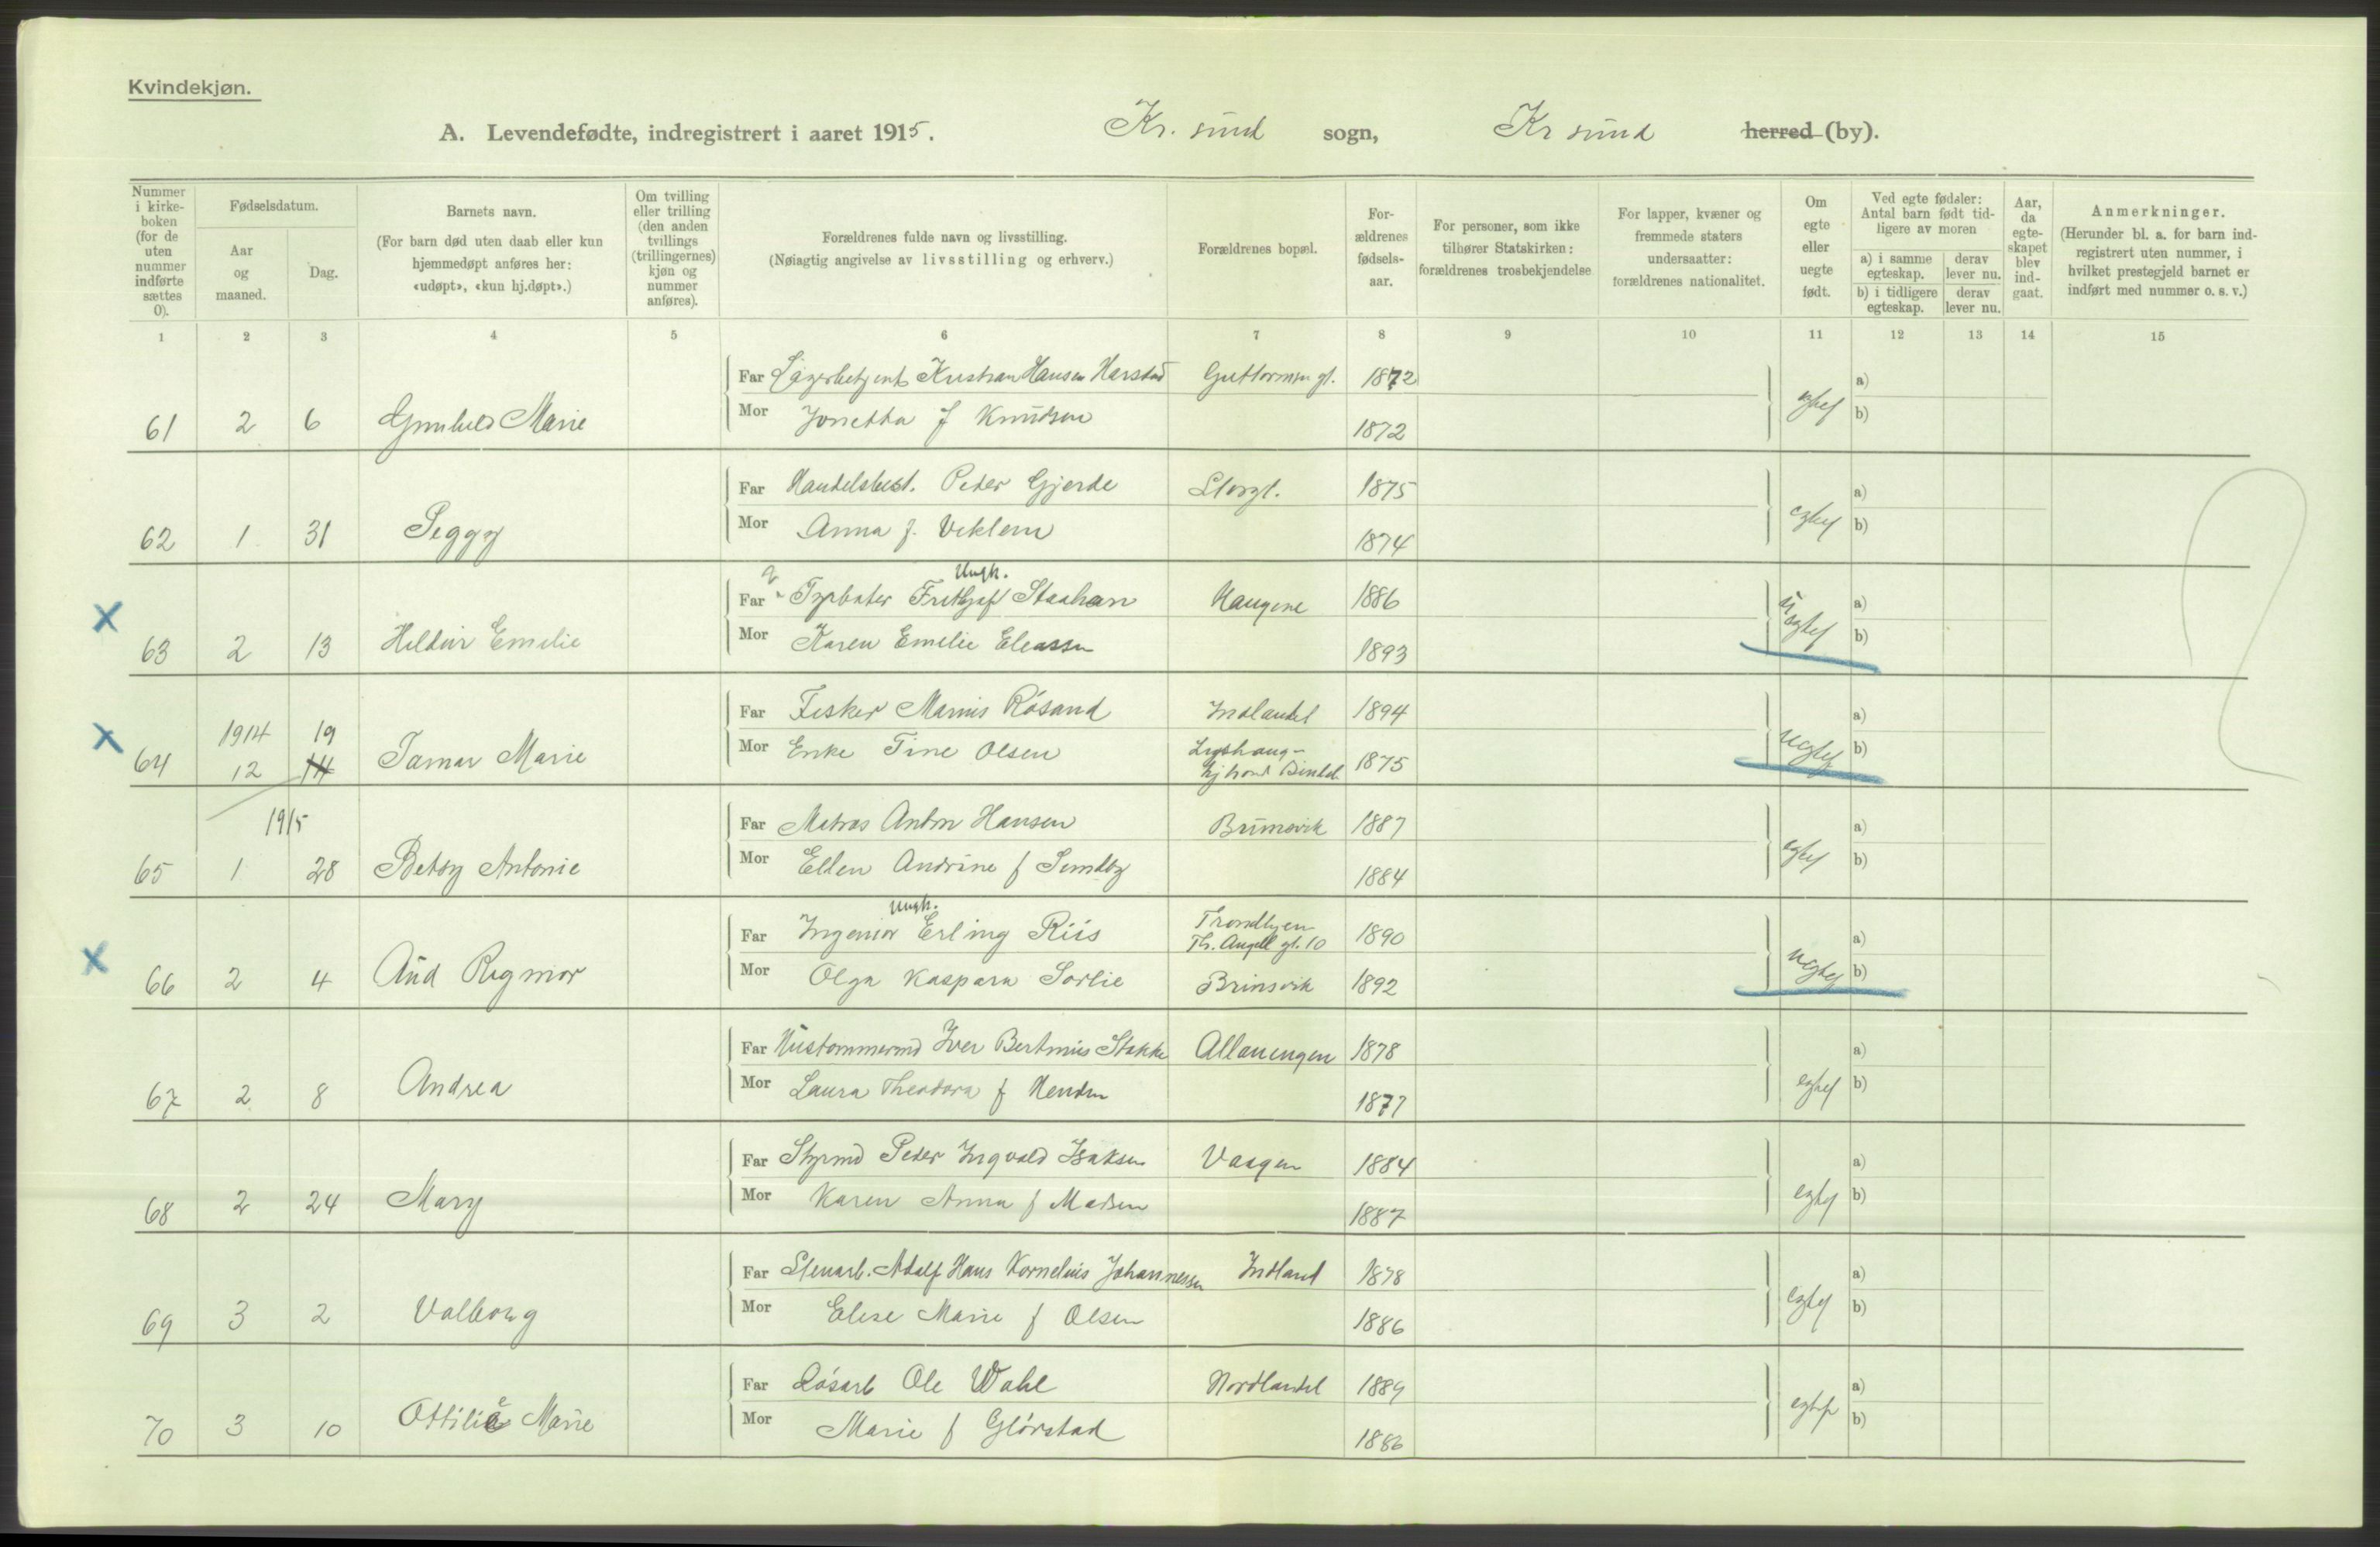 Kvindekjøn.
A. Levendefødte, indregistrert i aaret 1915. Kr. sund sogn, Kr sund herred (by).
Nummer i kirkeboken (for de uten nummer indførte sættes 0).
Fødselsdatum.
Aar og maaned.
Dag.
Barnets navn.
(For barn død uten daab eller kun hjemmedøpt anføres her: «udøpt», «kun hj.døpt».)
Om tvilling eller trilling (den anden tvillings (trillingernes) kjøn og nummer anføres).
Forældrenes fulde navn og livsstilling.
(Nøiagtig angivelse av livsstilling og erhverv.)
Forældrenes bopæl.
Forældrenes fødselsaar.
For personer, som ikke tilhører Statskirken: forældrenes trosbekjendelse.
For lapper, kvæner og fremmede staters undersaatter: forældrenes nationalitet.
Om egte eller uegte født.
Ved egte fødsler: Antal barn født tidligere av moren
a) i samme egteskap. derav lever nu.
b) i tidligere egteskap. derav lever nu.
Aar, da egteskapet blev indgaat.
Anmerkninger.
(Herunder bl. a. for barn indregistrert uten nummer, i hvilket prestegjeld barnet er indført med nummer o. s. v.)
1 2 3 4 5 6 7 8 9 10 11 12 13 14 15
Far Lagerbetjent Kristian Hansen Harstad 1872 a)
61 2 6 Marie Mor f Knudsen 1872 b)
Far Peder Gjerde Storgt. 1875 a)
62 1 31 Peggy Mor Anna f. 1874 egtef b)
Ungk.
Far 1886 a)
X 63 2 13 Emilie Mor Karen Emilie Eleassen 1893 uegtef b)
Far Fisker Marius Røsand Indlandet 1894 a)
X 64 1914 12 19 14 Tamar Marie Mor Enke Tine Olsen 1875 uegtef b)
1915
Far Matros Anton Hansen 1887 a)
65 1 28 Betsy Antonie Mor Ellen Andrine f 1884 egtef b)
Ungk.
Far Ingeniør Erling Riis Trondhjem Th. Angell gt. 10 1890 a)
X 66 2 4 Aud Rigmor Mor Olga Kaspara Sørlie 1892 uegtef b)
Far Iver 1878 a)
67 2 8 Andrea Mor Laura Theodora f 1877 egtef b)
Far Styrmd Peder Ingvald Isaksen Vaagen 1884 a)
68 2 24 Mary Mor Karen Anna f Madsen 1887 egtef b)
Far Stenarb. Adolf Hans Kornelius Johannessen Indland 1878 a)
69 3 2 Valborg Mor Elise Marie f Olsen 1886 egtef b)
Far Løsarb Ole Wahl Nordlandet 1889 a)
70 3 10 Ottilie Marie Mor Marie f Glørstad 1886 egtef b)